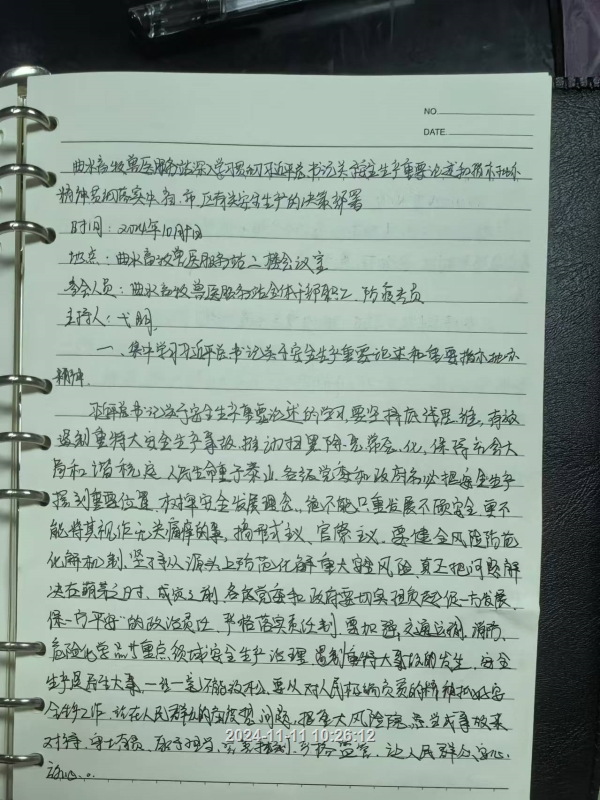 NO.
DATE.
曲水畜牧兽医服务站深入学习贯彻习近平总书记关于安全生产重要论述和指示批示
精神贯彻落实 省、市、区有关安全生产的决策部署
时间：2024年10月9日
地点：曲水畜牧兽医服务站二楼会议室
参会人员：曲水畜牧兽医服务站全体干部职工、防疫员
主持人：弋明
一、集中学习习近平总书记关于安全生产重要论述和重要指示批示
精神。
习近平总书记关于安全生产重要论述的学习，要坚持底线思维，有效
遏制重特大安全生产事故，推动扫黑除恶常态化，保障社会大
局和谐稳定，人民生命重于泰山，各级党委和政府务必把安全生产
摆到重要位置，树牢安全发展理念，绝不能只重发展不顾安全，更不
能将其视作无关痛痒的事，搞形式主义、官僚主义。要健全风险防范
化解机制，坚持从源头上防范化解重大安全风险，真正把问题解
决在萌芽之时、成灾之前，各级党委和政府要切实担负起促一方发展、
保一方平安的政治责任，严格落实责任制，要加强交通运输、消防、
危险化学品等重点领域安全生产治理，遏制重特大事故的发生。安全
生产是民生大事，一丝一毫不能放松，要以对人民极端负责的精神抓好安
全生产工作，站在人民群众的角度想问题，把重大风险隐患当成事故来
对待，守土有责，敢于担当，完善体制，严格监管，让人民群众安心
放心。
2024-11-11 10:26:12